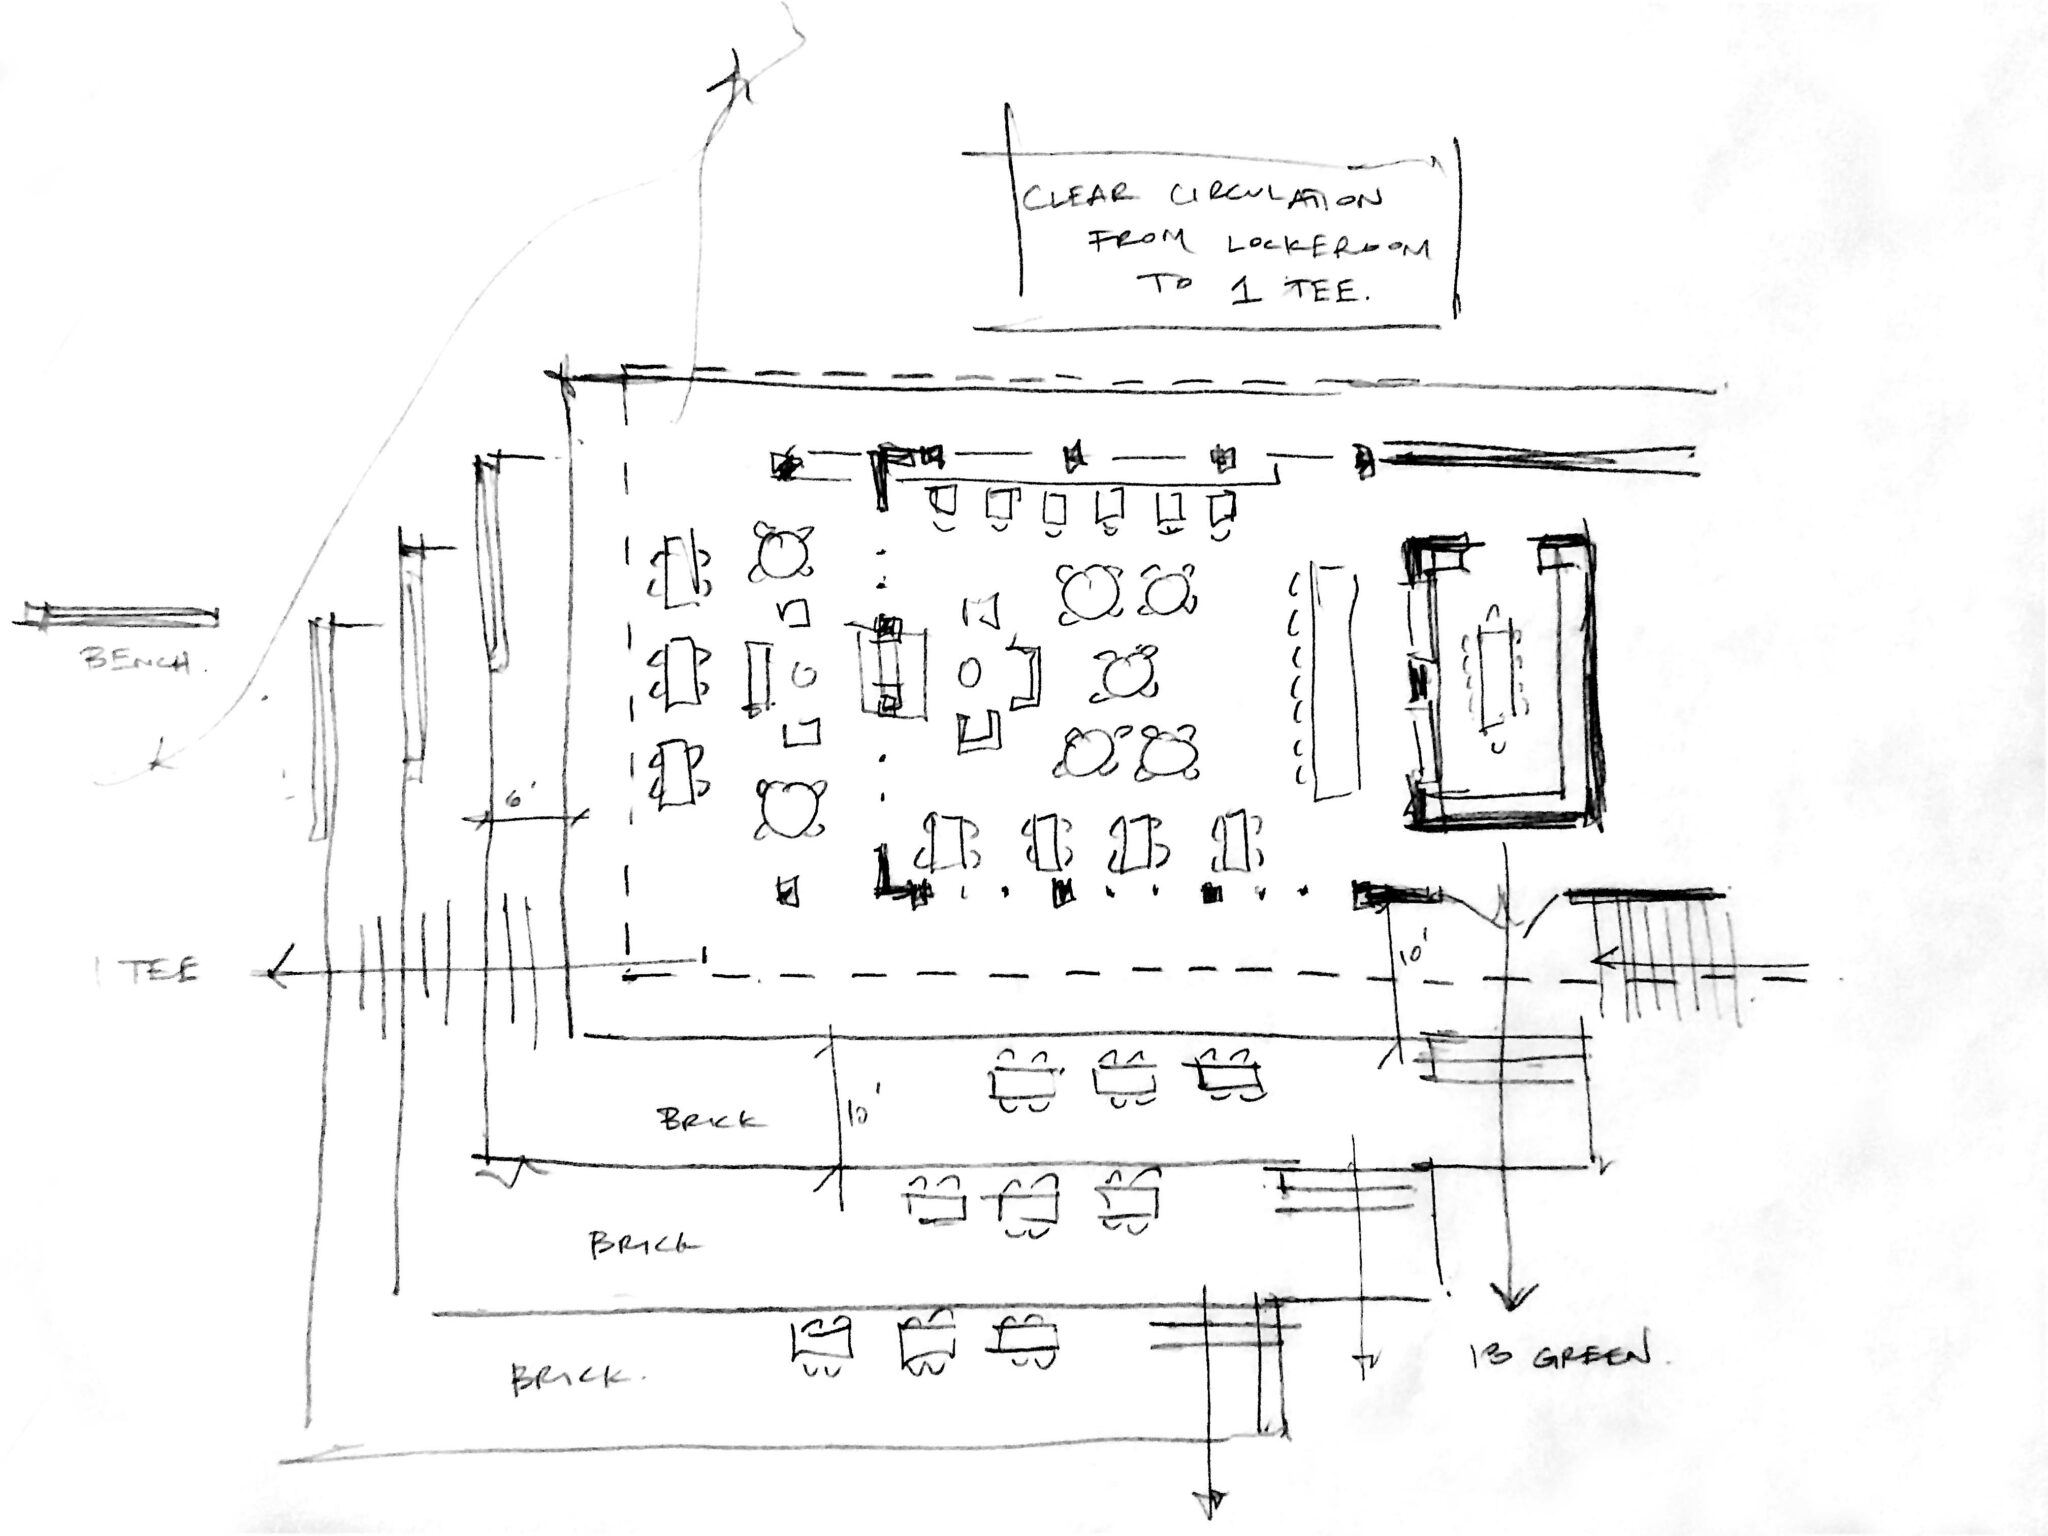 CLEAR CIRCULATION
FROM LOCKEROOM
TO 1 TEE.
BENCH.
6'
1 TEE
10'
BRICK
10'
BRICK
BRICK.
GREEN.